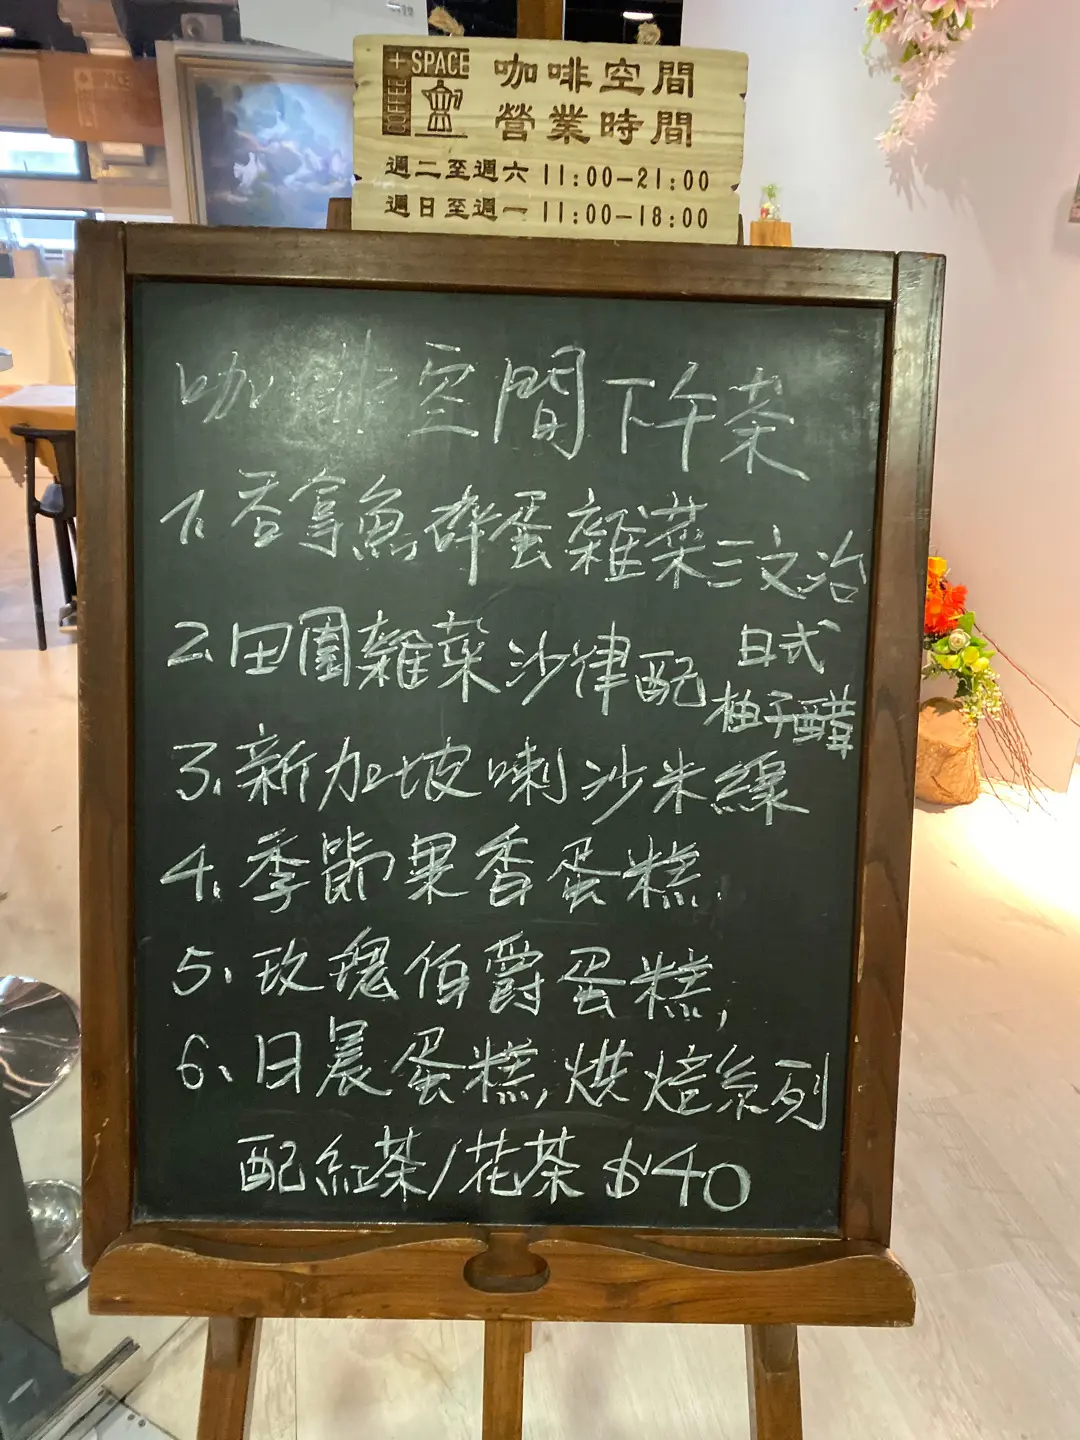 +SPACE
COFFEE
咖啡空間
營業時間
週二至週六 11:00-21:00
週日至週一 11:00-18:00
咖啡空間下午茶
1. 吞拿魚碎蛋雜菜三文治
2. 田園雜菜沙律配 日式
柚子醋
3. 新加坡喇沙米線
4. 季節果香蛋糕,
5. 玫瑰伯爵蛋糕,
6. 日晨蛋糕, 烘焙系列
配紅茶/花茶 $40